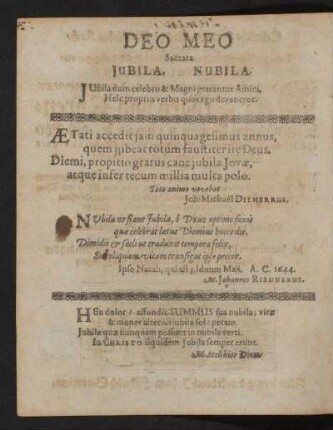 DEO MEO
Sacrata
JUBILA. NUBILA.
JUbila dum celebro & Magni gratantur Amici,
Heic propriis verbis quos ego deveneror.
ÆTati accedit jam quinquagesimus annus,
quem jubeat totum faustiter ire Deus.
Diemi, propitio gratus cane jubila Jovæ,
atque infer tecum millia multa polo.
Toto animo vovebat
Joh: Michaël DILHERRUS.
NUbila ne fiant Jubila, ô Deus optime faxis
quæ celebrat lætus Diemius hocce die.
Dimidii & sæcli ut traduxit tempora felix,
Sic reliquam vitam transigat ipse precor.
Ipso Natali, qui est 3. Iduum Maji, A. C. 1644.
M. Johannes RIEDNERUS.
HEu dolor! affundit SUMMUS sua nubila; vitæ
& monet alterius jubila sola petam.
Jubila quæ nunquam possunt in nubila verti.
In CHRISTO siquidem Jubila semper erunt.
M. Melchior Diem